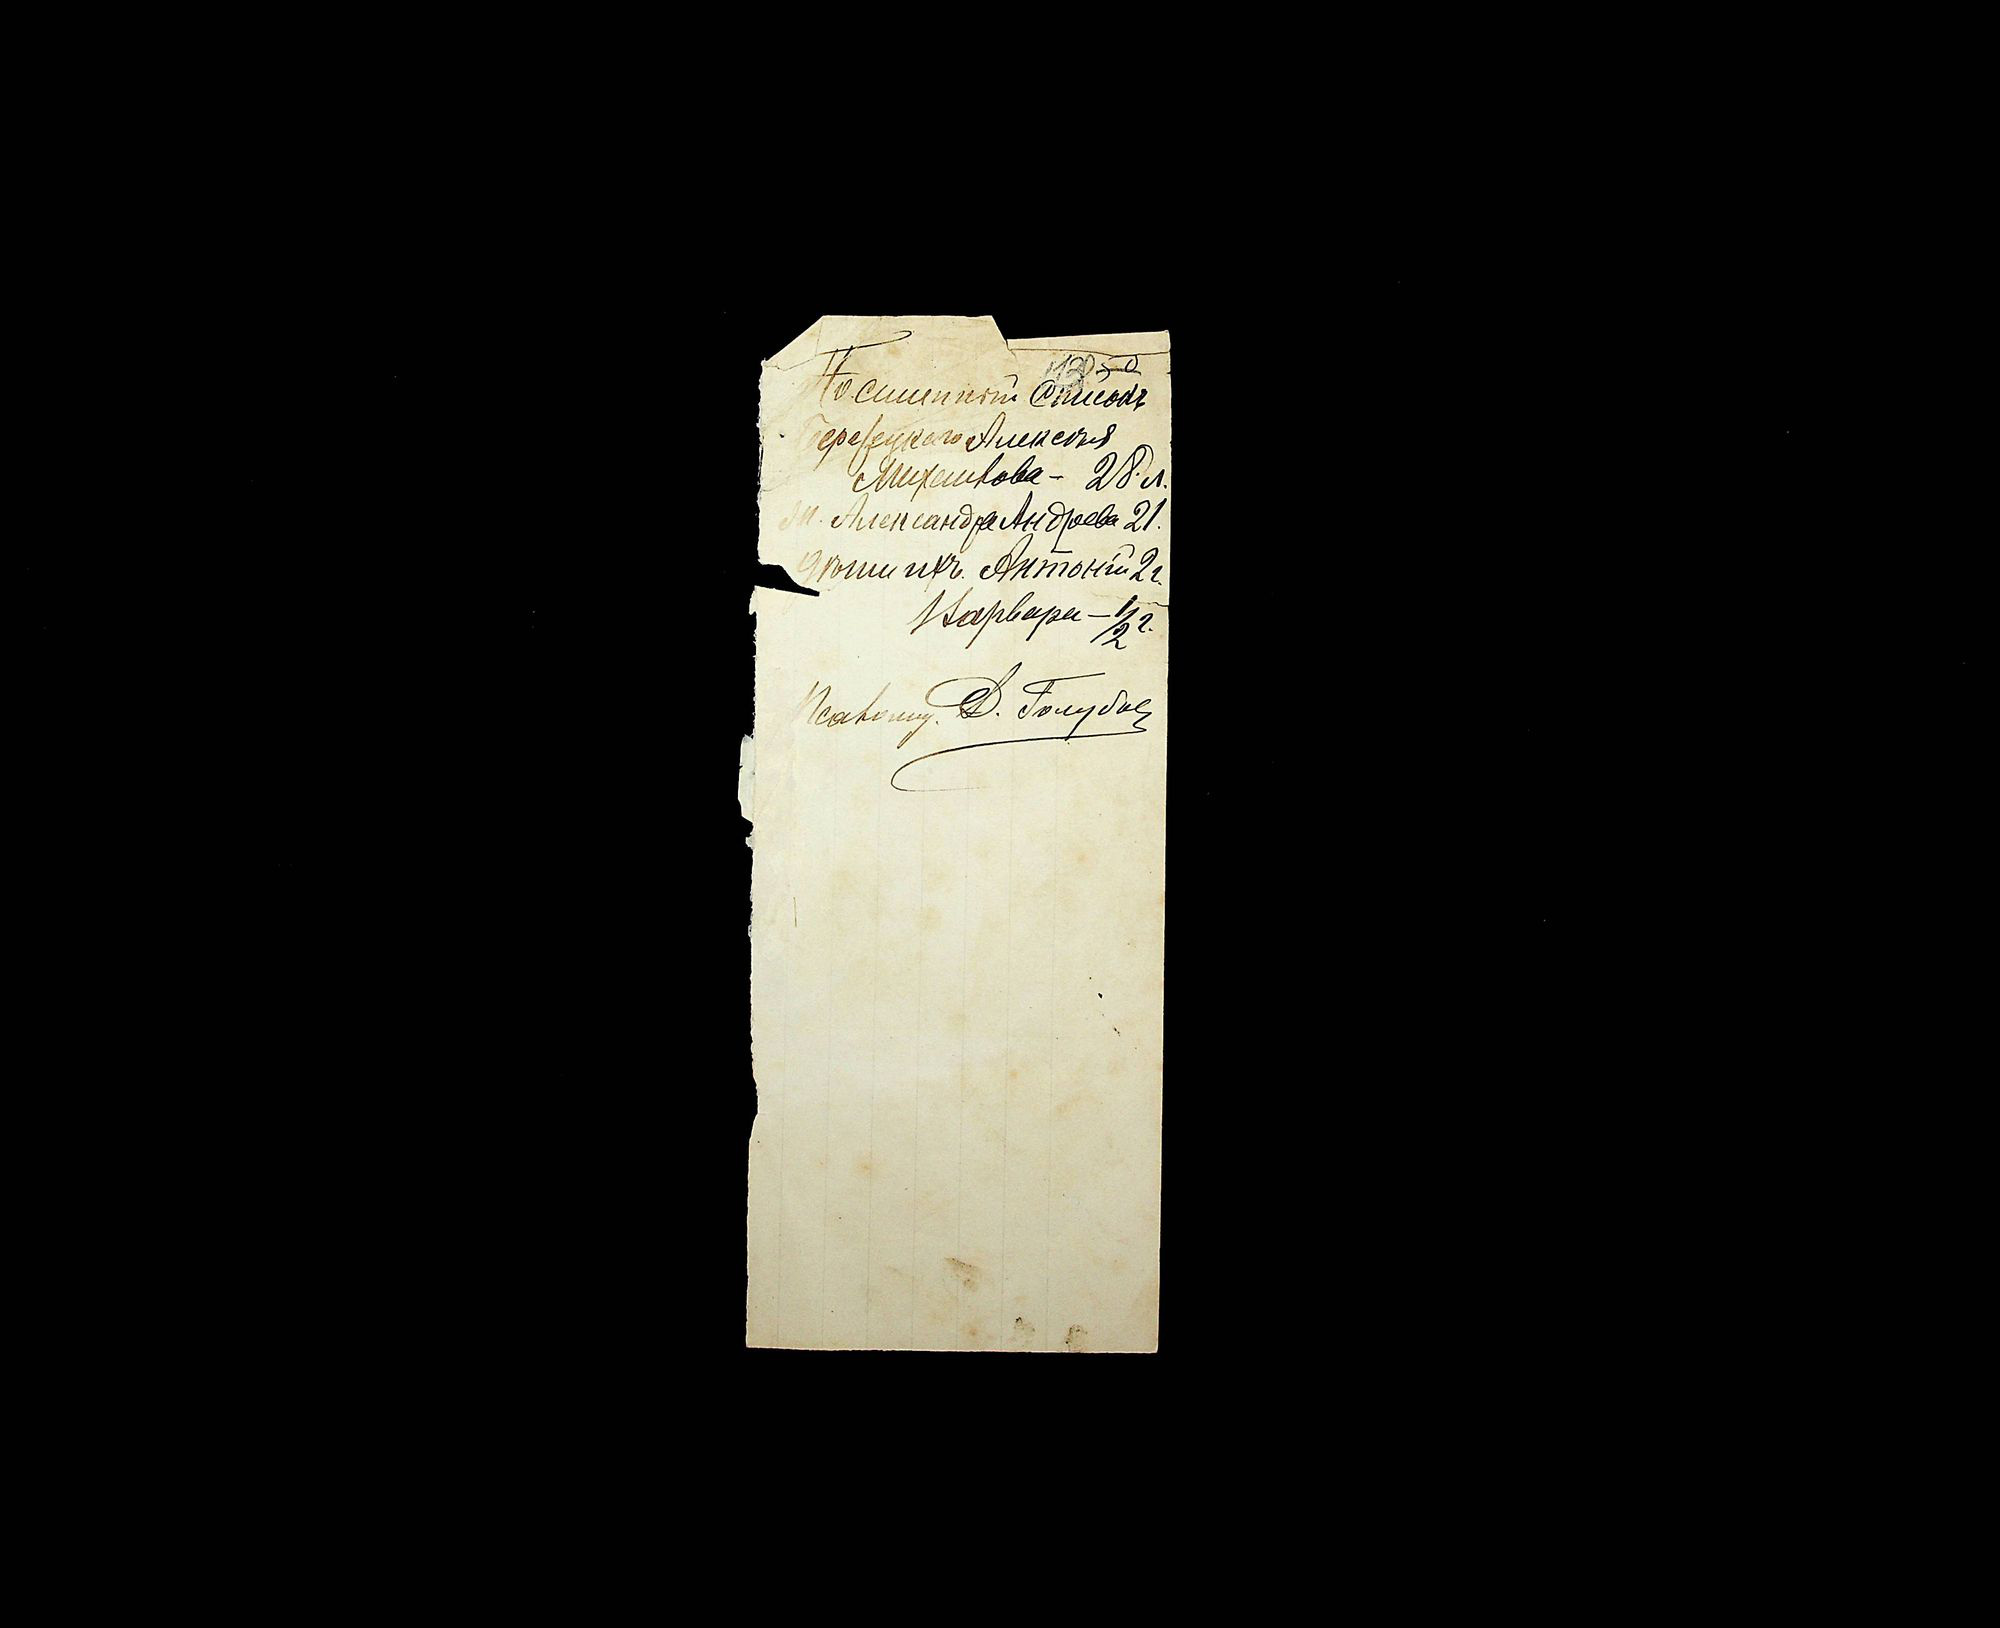 50
Посемейный Списокъ
Березецкаго Алексѣя
Михайлова – 28 л.
ж. Александра Андреева 21.
дѣти ихъ. Антоній 2 г.
Варвара – 1/2 г.
Псаломщ. Д. Голубов